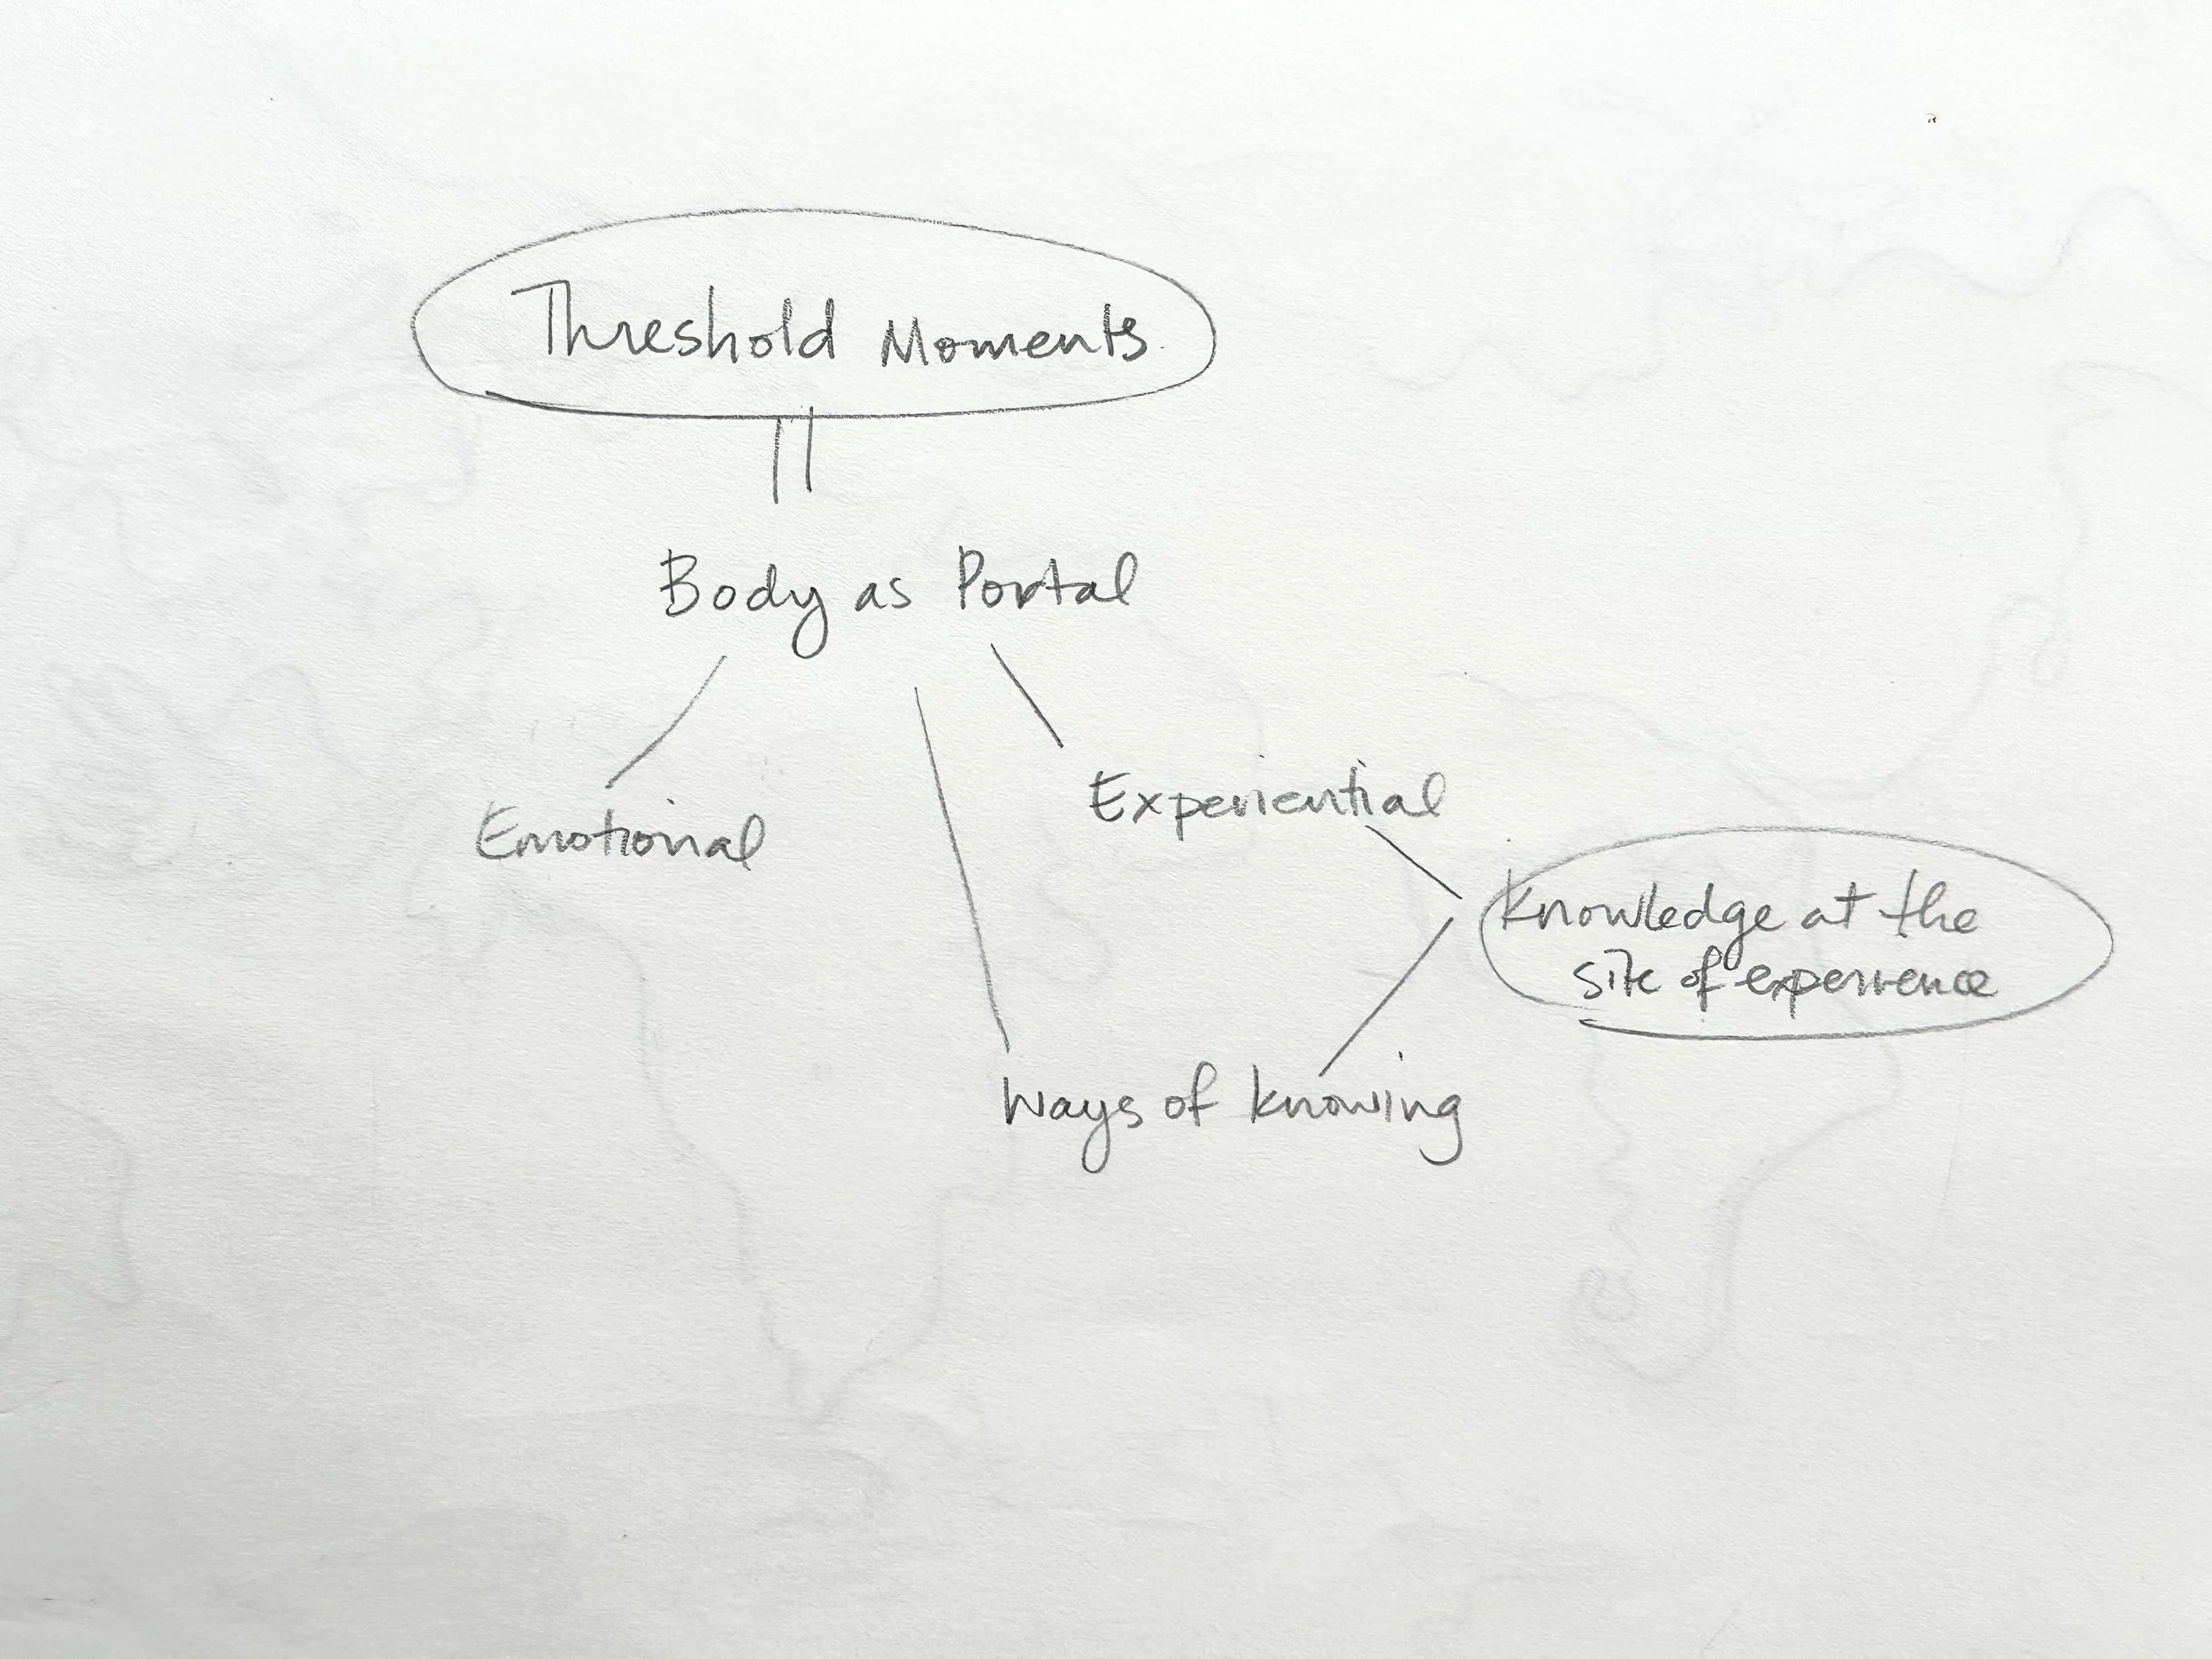 Threshold Moments
Body as Portal
Emotional
Experiential
Knowledge at the
site of experience
Ways of knowing